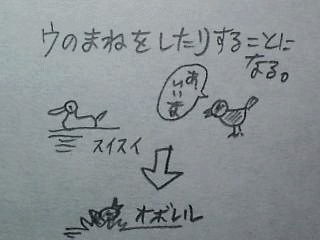 ウのまねをしたりすることに
なる。
あ、
いいな
スイスイ
オボレル